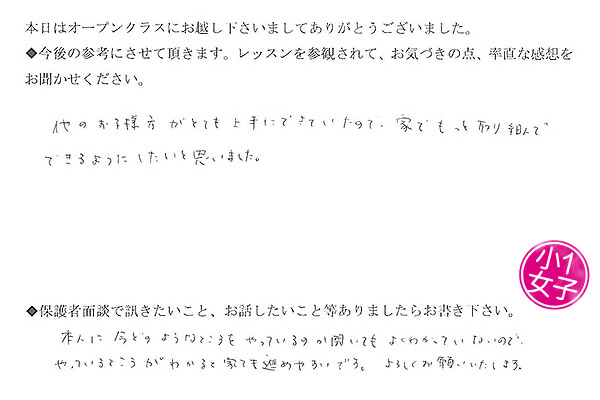 本日はオープンクラスにお越し下さいましてありがとうございました。
◆今後の参考にさせて頂きます。レッスンを参観されて、お気づきの点、率直な感想を
お聞かせください。
他のお子様方がとても上手にできていたので、家でもっと取り組んで
できるようにしたいと思いました。
小1
女子
◆保護者面談で訊きたいこと、お話したいこと等ありましたらお書き下さい。
本人に今どのようなところをやっているのか聞いてもよくわかっていないので、
やっているところがわかると家でも進めやすいです。よろしくお願いいたします。